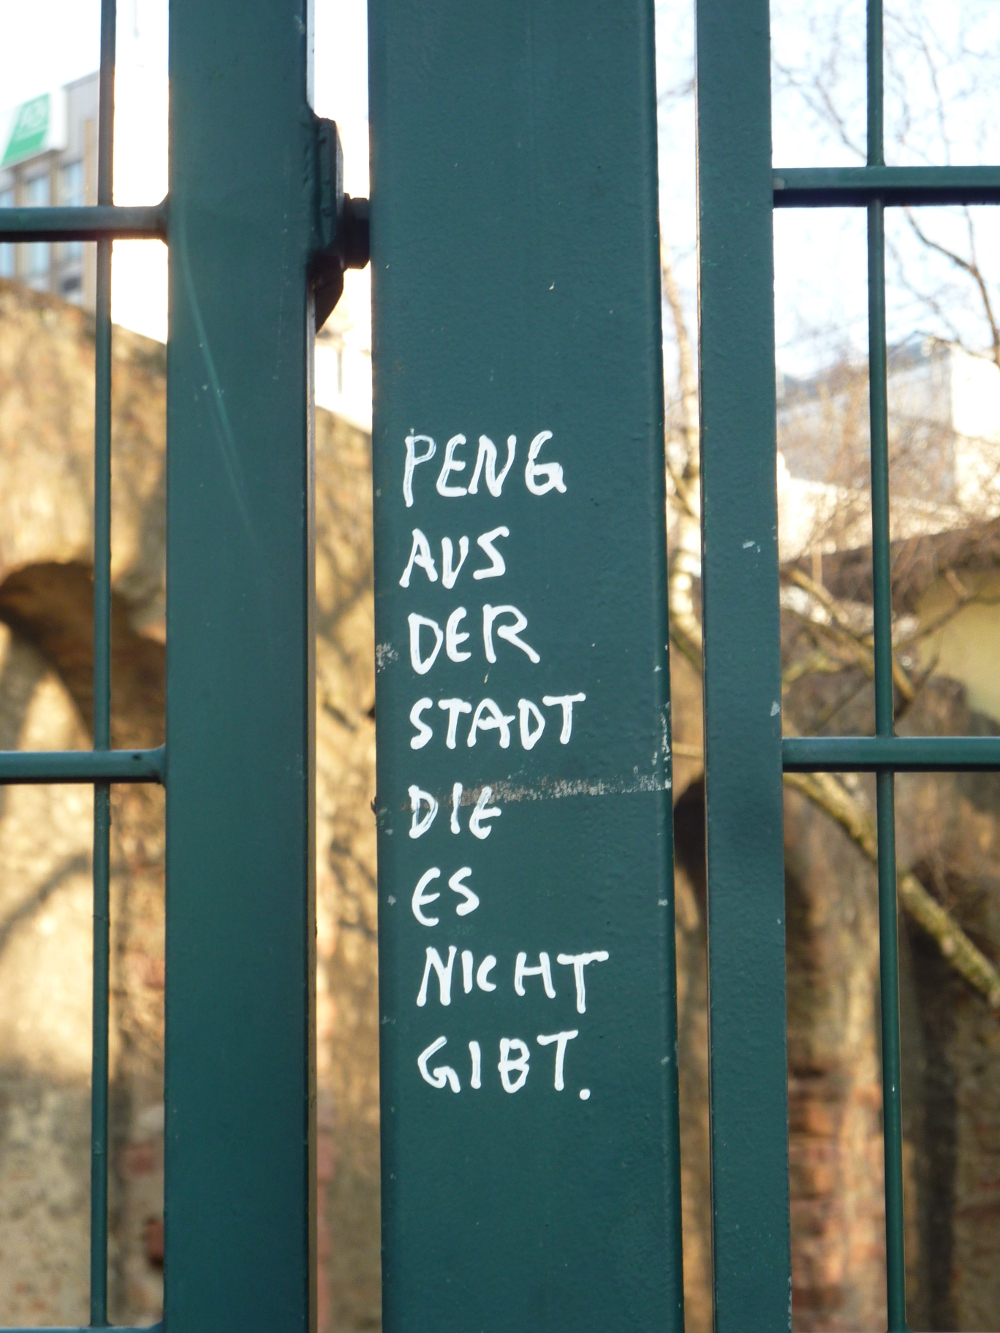 PENG
AUS
DER
STADT
DIE
ES
NICHT
GIBT.